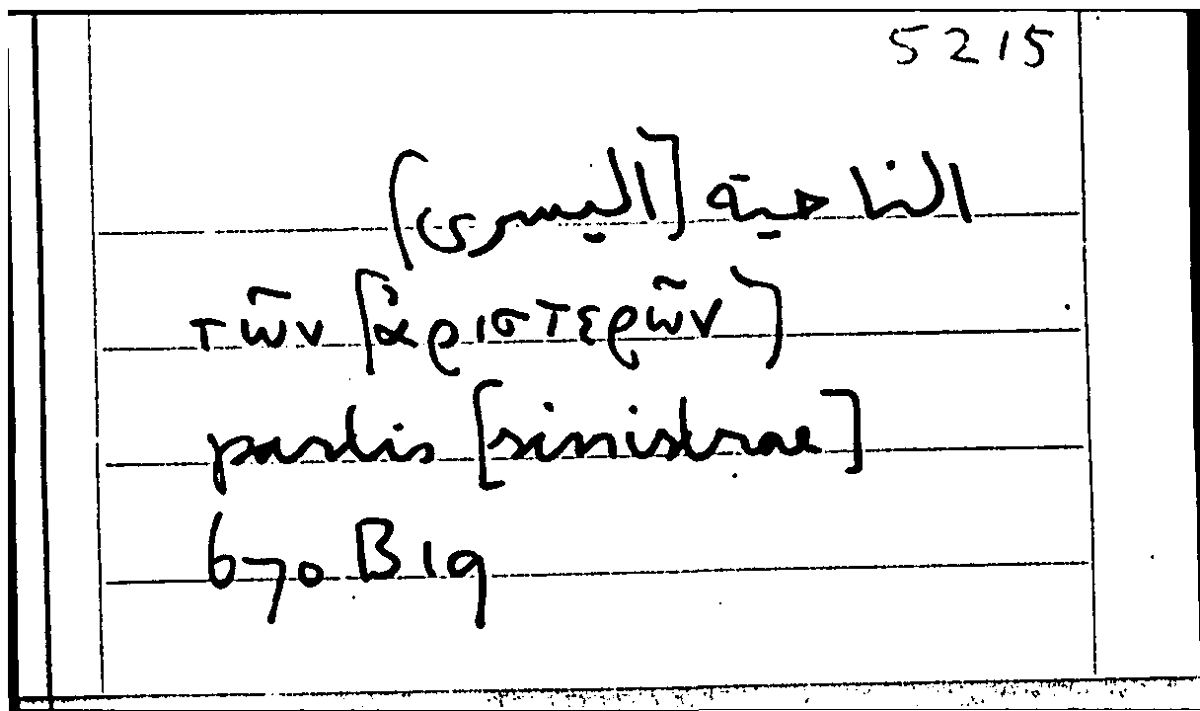 5215
الناحية [اليسرى]
τῶν [ἀριστερῶν]
partis [sinistrae]
670 B 19